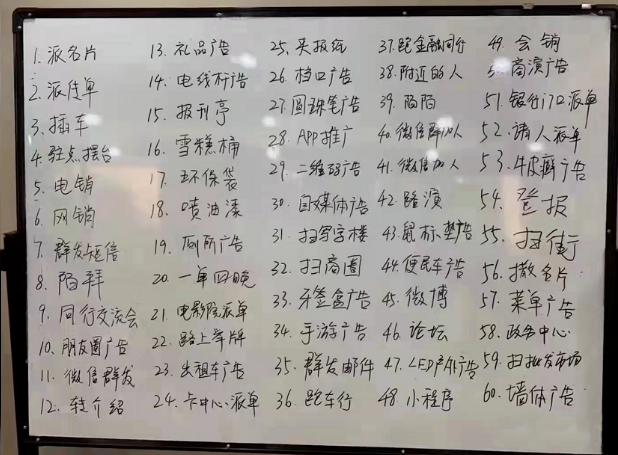 1. 派名片
2. 派传单
3. 插车
4. 驻点摆台
5. 电销
6. 网销
7. 群发短信
8. 陌拜
9. 同行交流会
10. 朋友圈广告
11. 微信群发
12. 转介绍
13. 礼品广告
14. 电线杆广告
15. 报刊亭
16. 雪糕桶
17. 环保袋
18. 喷油漆
19. 厕所广告
20. 一单四晚
21. 电影院派单
22. 路上举牌
23. 出租车广告
24. 卡中心派单
25. 夹报纸
26. 档口广告
27. 圆珠笔广告
28. APP推广
29. 二维码广告
30. 自媒体广告
31. 扫写字楼
32. 扫商圈
33. 牙签盒广告
34. 手游广告
35. 群发邮件
36. 跑车行
37. 跑金融同行
38. 附近的人
39. 陌陌
40. 微信群加人
41. 微信加人
42. 路演
43. 鼠标垫广告
44. 便民车广告
45. 微博
46. 论坛
47. LED户外广告
48. 小程序
49. 会销
商演广告
51. 银行门口派单
52. 请人派单
53. 牛皮癣广告
54. 登报
55. 扫街
56. 撒名片
57. 菜单广告
58. 政务中心
59. 扫批发市场
60. 墙体广告